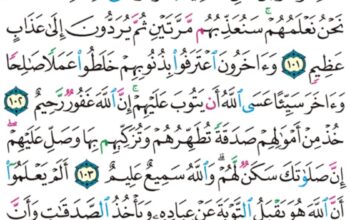 نَحْنُ نَعْلَمُهُمْ ۚ سَنُعَذِّبُهُم مَّرَّتَيْنِ ثُمَّ يُرَدُّونَ إِلَىٰ عَذَابٍ
عَظِيمٍ ١٠١ وَءَاخَرُونَ ٱعْتَرَفُوا۟ بِذُنُوبِهِمْ خَلَطُوا۟ عَمَلًا صَـٰلِحًا
وَءَاخَرَ سَيِّئًا عَسَى ٱللَّهُ أَن يَتُوبَ عَلَيْهِمْ ۚ إِنَّ ٱللَّهَ غَفُورٌ رَّحِيمٌ ١٠٢
خُذْ مِنْ أَمْوَٰلِهِمْ صَدَقَةً تُطَهِّرُهُمْ وَتُزَكِّيهِم بِهَا وَصَلِّ عَلَيْهِمْ ۖ
إِنَّ صَلَوٰتَكَ سَكَنٌ لَّهُمْ ۗ وَٱللَّهُ سَمِيعٌ عَلِيمٌ ١٠٣ أَلَمْ يَعْلَمُوٓا۟
أَنَّ ٱللَّهَ هُوَ يَقْبَلُ ٱلتَّوْبَةَ عَنْ عِبَادِهِۦ وَيَأْخُذُ ٱلصَّدَقَـٰتِ وَأَنَّ